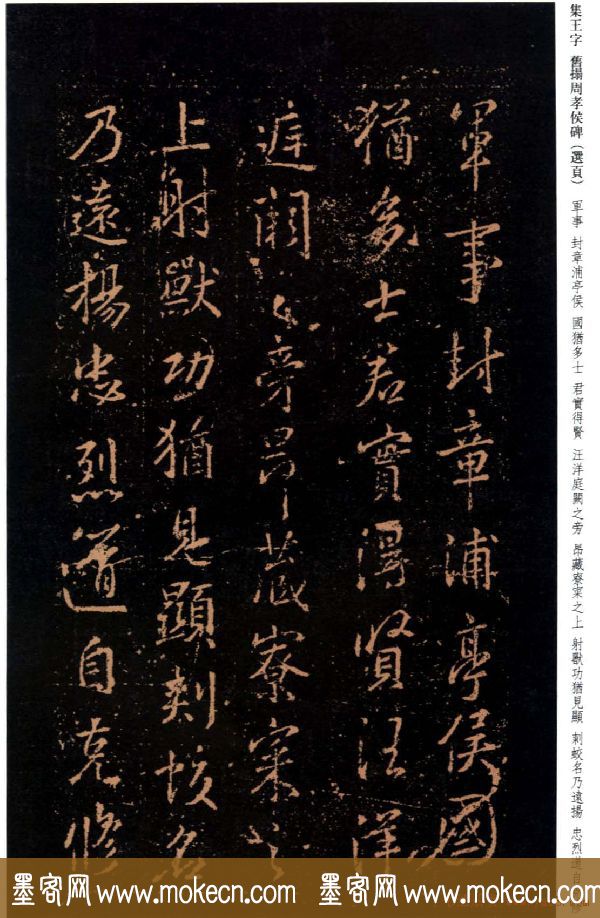 集王字 舊搨周孝侯碑（選頁） 軍事 封章浦亭侯 國猶多士 君實得賢 汪洋庭闕之旁 昂藏寮寀之上 射獸功猶見顯 刺蛟名乃遠揚 忠烈道自
軍事封章浦亭侯國
猶多士君實得賢汪洋
庭闕之旁昂藏寮寀之
上射獸功猶見顯刺蛟名
乃遠揚忠烈道自克修
墨客网 www.mokecn.com 墨客网 www.mokecn.com